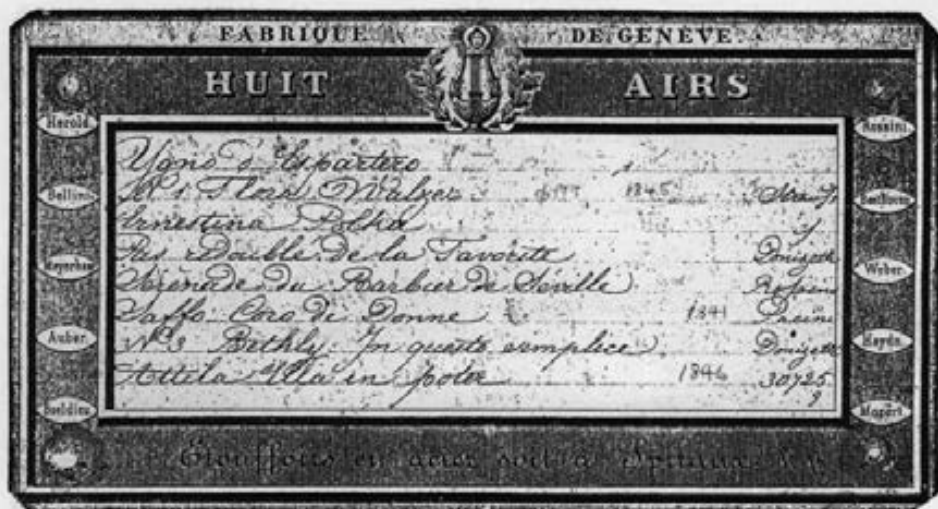 FABRIQUE DE GENÈVE
HUIT AIRS
Herold
Bellini
Meyerbeer
Auber
Boeldieu
Rossini
Beethoven
Weber
Haydn
Mozart
Ygno d'Espartero
N° 1 Flora Walzer 1845
Ernestina Polka
Pas redoublé de la Favorite Donizetti
Sérénade du Barbier de Séville Rossini
Saffo Coro di Donne 1841 Pacini
N° 3 Bethly In questo semplice Donizetti
Attila Ella in poter 1846 30725
9
Etouffoirs en acier soit à Spiraux